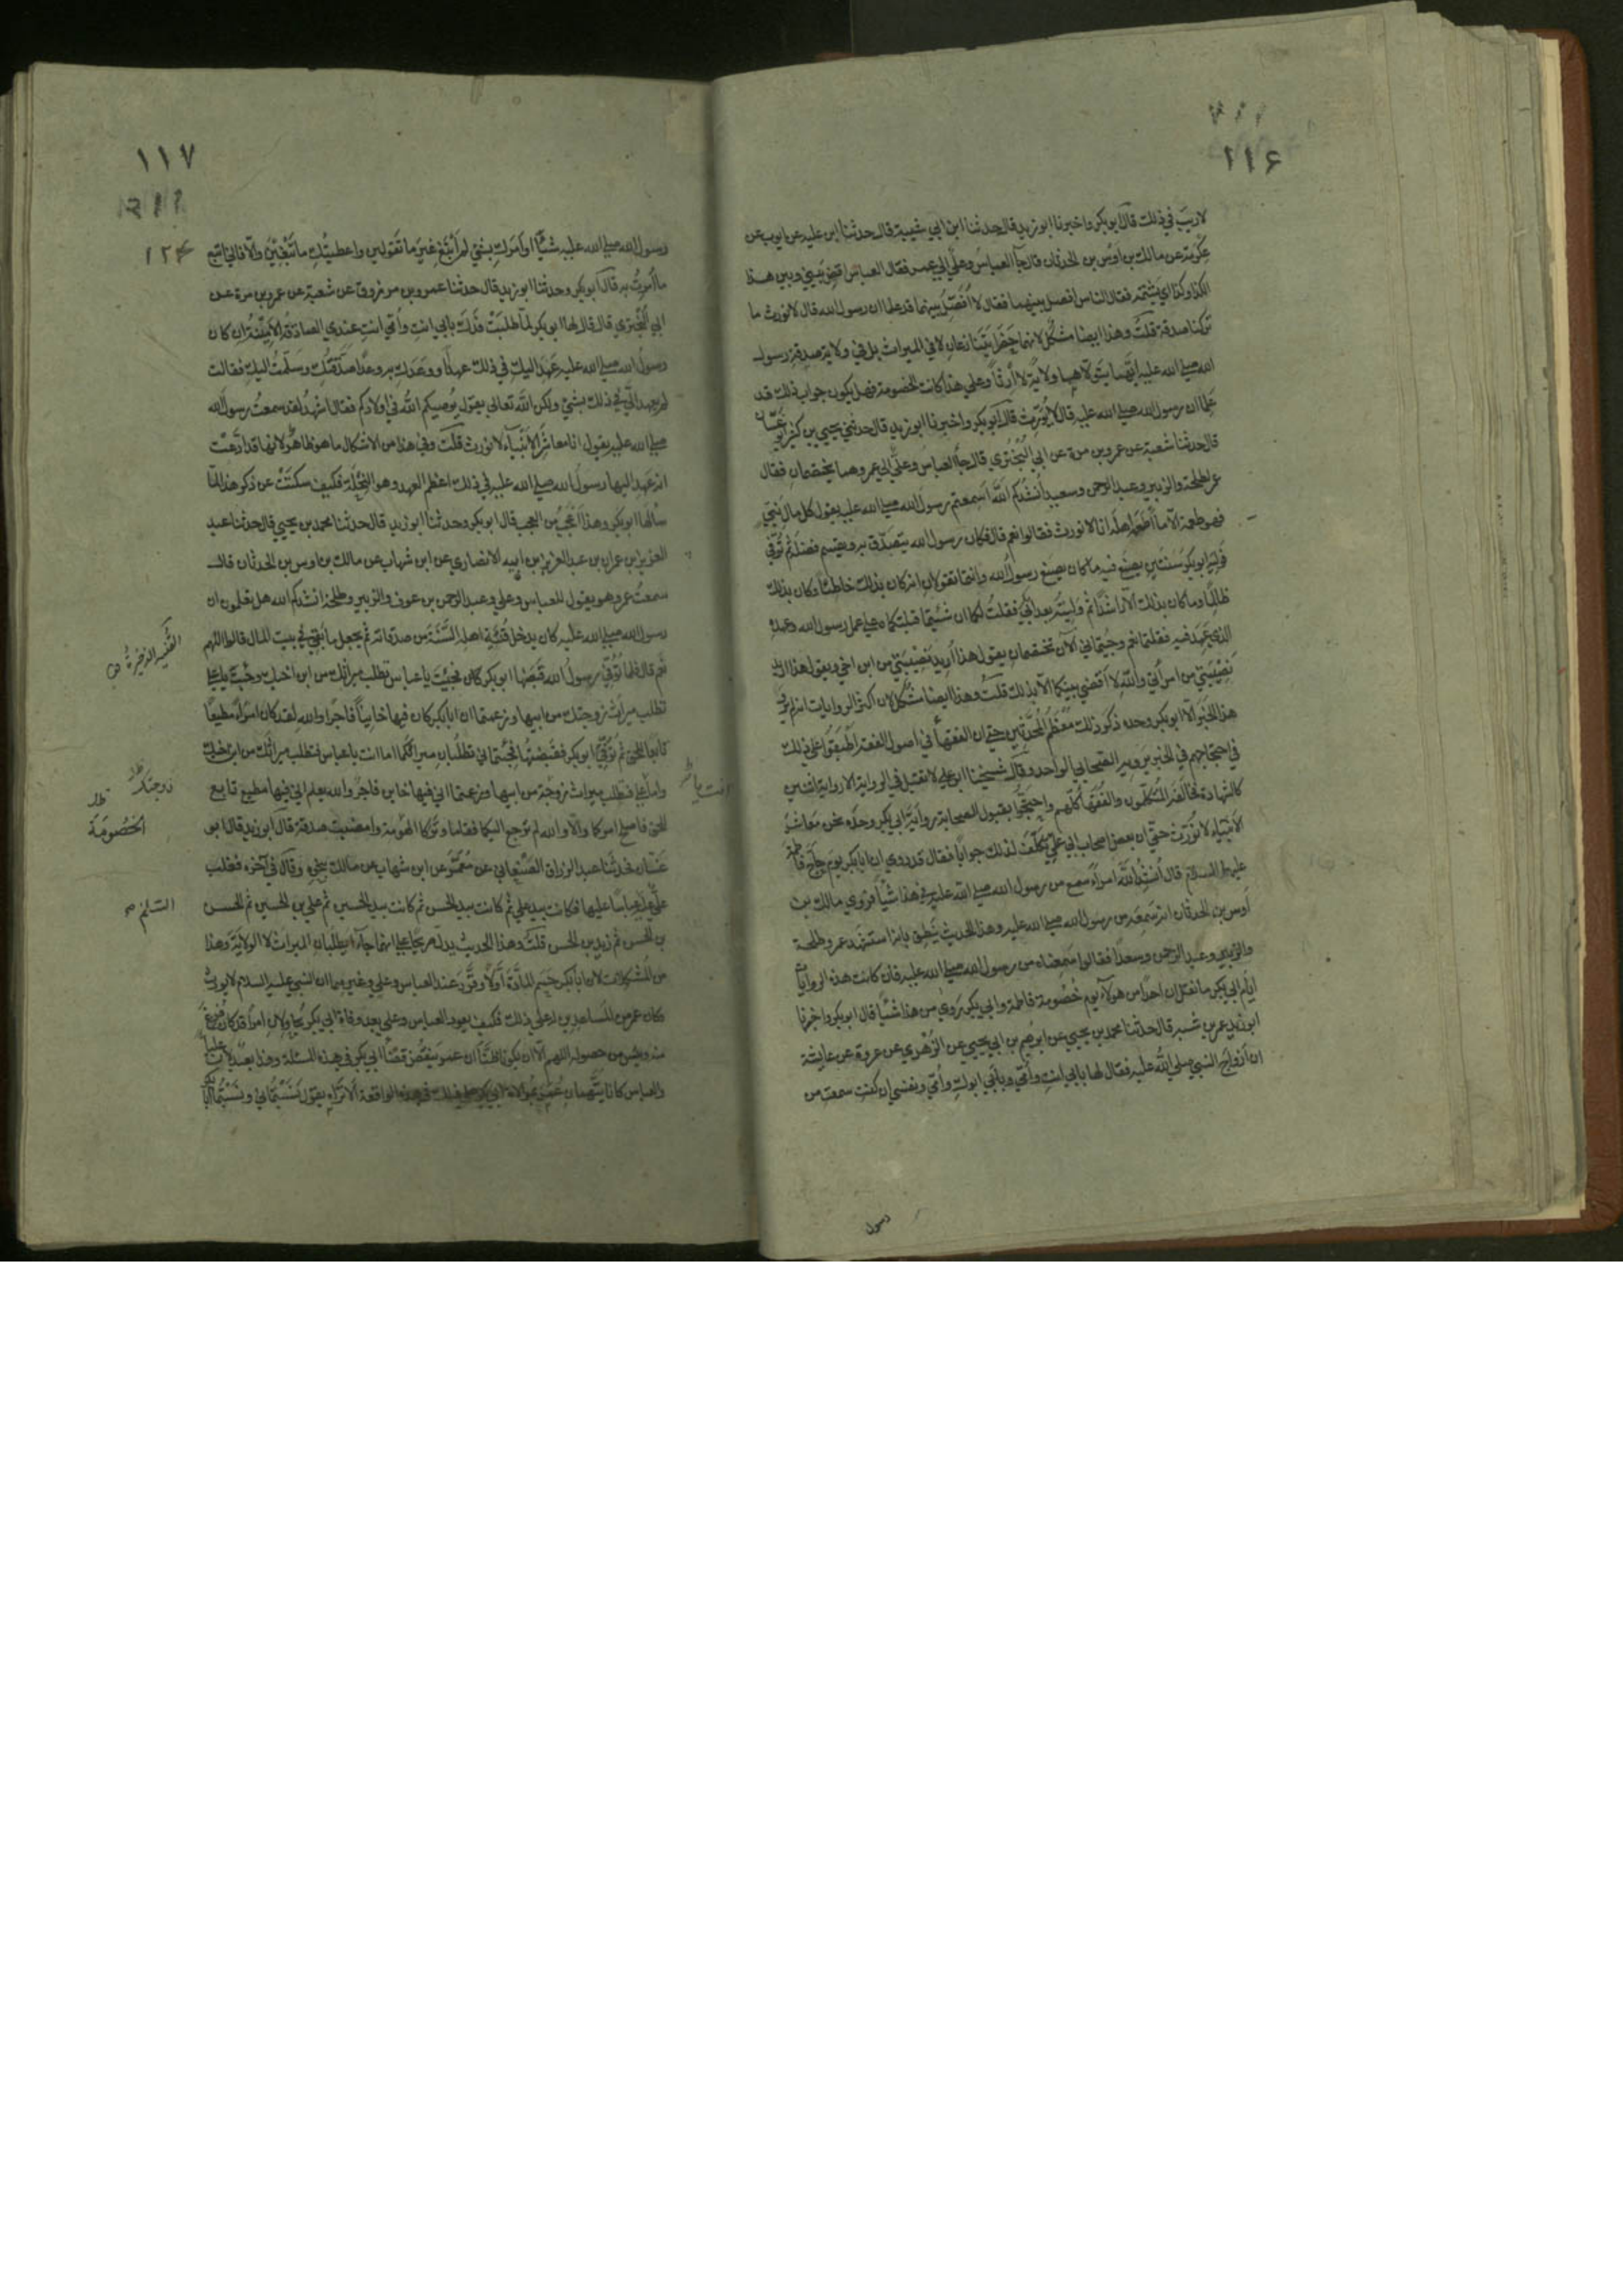 ١١۶
لا ريب في ذلك قال ابو بكر واخبرنا ابو زيد قال حدثنا ابن ابي شيبة قال حدثنا ابن علية عن ايوب عن
عكرمة عن مالك بن اوس بن الحدثان قال جآ العباس وعلي الي عمر فقال العباس اقض بيني وبين هذا
الكذا وكذا اي يشتمه فقال الناس افصل بينهما فقال لا افصل بينهما قد علما ان رسول الله قال لا نورث ما
تركنا صدقة قلت وهذا ايضا مشكل لانهما حضرا يتنازعان لا في الميراث بل في ولاية صدقة رسول
الله صلي الله عليه ايهما يتولاهما ولاية لا ارثا وعلي هذا كانت الخصومة فهل يكون جواب ذلك قد
علما ان رسول الله صلي الله عليه قال لا يورث قال ابو بكر واخبرنا ابو زيد قال حدثني يحيي بن كثير ابو غسان
قال حدثنا شعبة عن عمرو بن مرة عن ابي البختري قال جآ العباس وعلي الي عمر وهما يختصمان فقال
عمر لطلحة والزبير وعبد الرحمن وسعيد أنشدكم الله اسمعتم رسول الله صلي الله عليه يقول كل مال نبي
فهو طعمة الا ما أطعمه اهله انا لا نورث فقالوا نعم قال فكان رسول الله يتصدق به ويقسم فضله ثم توفي
فوليه ابو بكر سنتين يصنع فيه ما كان يصنع رسول الله وانتما تقولان انه كان بذلك خاطئا وكان بذلك
ظالما وما كان بذلك الا راشدا ثم وليته بعد ابي بكر فقلت لكما ان شئتما قبلتكماه علي عمل رسول الله وعهده
الذي عهد فيه فقلتما نعم وجئتماني الآن تختصمان يقول هذا أريد نصيبي من ابن اخي ويقول هذا اريد
نصيبي من امرأتي والله لا اقضي بينكما الا بذلك قلت وهذا ايضا مشكل لان اكثر الروايات انه لم يرو
هذا الخبر الا ابو بكر وحده ذكر ذلك معظم المحدثين حتي ان الفقهآ في اصول الفقه اطبقوا علي ذلك
في احتجاجهم في الخبر يرويه الصحابي الواحد وقال شيخنا ابو علي لا تقبل في الرواية الا رواية اثنين
كالشهادة فخالفه المتكلمون والفقهآ كلهم واحتجوا بقبول الصحابة رواية ابي بكر وحده نحن معاشر
الانبيآء لا نورث حتي ان بعض اصحاب ابي علي تكلف لذلك جوابا فقال قد روي ان ابا بكر يوم حاج فاطمة
عليها السلام قال أنشد الله امرأ سمع من رسول الله صلي الله عليه في هذا شيئا فروي مالك بن
أوس بن الحدثان انه سمعه من رسول الله صلي الله عليه وهذا الحديث ينطق بانه استشهد عمر وطلحة
والزبير وعبد الرحمن وسعدا فقالوا سمعناه من رسول الله صلي الله عليه فاين كانت هذه الروايات
ايام ابي بكر ما نقل ان احدا من هولآء يوم خصومة فاطمة وابي بكر روي من هذا شيئا قال ابو بكر واخبرنا
ابو زيد عمر بن شبه قال حدثنا محمد بن يحيي عن ابرهيم بن ابي يحيي عن الزهري عن عروة عن عايشة
ان ازواج النبي صلي الله عليه فقال لها بابي انت وأمي وبابي ابوك وأمي ونفسي ان كنت سمعت من
رسول
١١٧
١٢۴
رسول الله صلي الله عليه شيئا او امرك بشئ لم أتبع غير ما تقولين واعطيتك ما تبتغين والا فاني اتبع
ما أمرت به قال ابو بكر وحدثنا ابو زيد قال حدثنا عمرو بن مرزوق عن شعبة عن عمرو بن مرة عن
ابي البختري قال قال لها ابو بكر لما طلبت فدك بابي انت وأمي انت عندي الصادقة الامينة ان كان
رسول الله صلي الله عليه عهد اليك في ذلك عهدا ووعدك به وعدا صدقتك وسلمت اليك فقالت
لم يعهد الي في ذلك بشئ ولكن الله تعالي يقول يوصيكم الله في اولادكم فقال اشهد لقد سمعت رسول الله
صلي الله عليه يقول انا معاشر الانبيآء لا نورث قلت وفي هذا من الاشكال ما هو ظاهر لانها قد ادعت
انه عهد اليها رسول الله صلي الله عليه في ذلك اعظم العهد وهو النحلة فكيف سكتت عن ذكر هذا لما
سألها ابو بكر وهذا اعجب من العجب قال ابو بكر وحدثنا ابو زيد قال حدثنا محمد بن يحيي قال حدثنا عبد
العزيز بن عمران بن عبد العزيز بن ابيه الانصاري عن ابن شهاب عن مالك بن اوس بن الحدثان قال
سمعت عمر وهو يقول للعباس وعلي وعبد الرحمن بن عوف والزبير وطلحة انشدكم الله هل تعلمون ان
رسول الله صلي الله عليه كان يدخل قنية اهله السنة من صدقاته ثم يجعل ما بقي في بيت المال قالوا اللهم
نعم قال فلما توفي رسول الله قبضها ابو بكر فجئت يا عباس تطلب ميراثك من ابن اخيك وجئت يا علي
تطلب ميراث زوجتك من ابيها وزعمتما ان ابا بكر كان فيها خاينا فاجرا والله لقد كان امرأ مطيعا
تابعا للحق ثم توفي ابو بكر فقبضتها فجئتماني تطلبان ميراثكما اما انت يا عباس فتطلب ميراثك من ابن اخيك
واما علي فتطلب ميراث زوجته من ابيها وزعمتما اني فيها خاين فاجر والله يعلم اني فيها مطيع تابع
للحق فاصلحا امركما والا والله لم ترجع اليكما فقاما وتركا الخصومة وامضيت صدقة قال ابو زيد قال ابو
غسان فحدثنا عبد الرزاق الصنعاني عن معمر عن ابن شهاب عن مالك بنحوه وقال في آخره فغلب
علي عباسا عليها فكانت بيد علي ثم كانت بيد الحسن ثم كانت بيد الحسين ثم علي بن الحسين ثم الحسن
بن الحسن ثم زيد بن الحسن قلت وهذا الحديث يدل صريحا علي انهما جاءا يطلبان الميراث لا الولاية وهذا
من المشكلات لان ابا بكر حسم المادة أولا وقرر عند العباس وعلي وغيرهما ان النبي عليه السلام لا يورث
وكان عمر من المساعدين له علي ذلك فكيف يعود العباس وعلي بعد وفاة ابي بكر يحاولان امرا قد كان فرغ
منه ويئس من حصوله اللهم الا ان يكونا ظنا ان عمر ينقض قضآ ابي بكر في هذه المسئلة وهذا بعيد لان عليا
والعباس كانا يتهمان عمر بممالاة ابي بكر علي ذلك الا تراه يقول نسبتماني ونسبتما ابا بكر
القنية الذخيرة
زوجتك
الخصومة
السلم